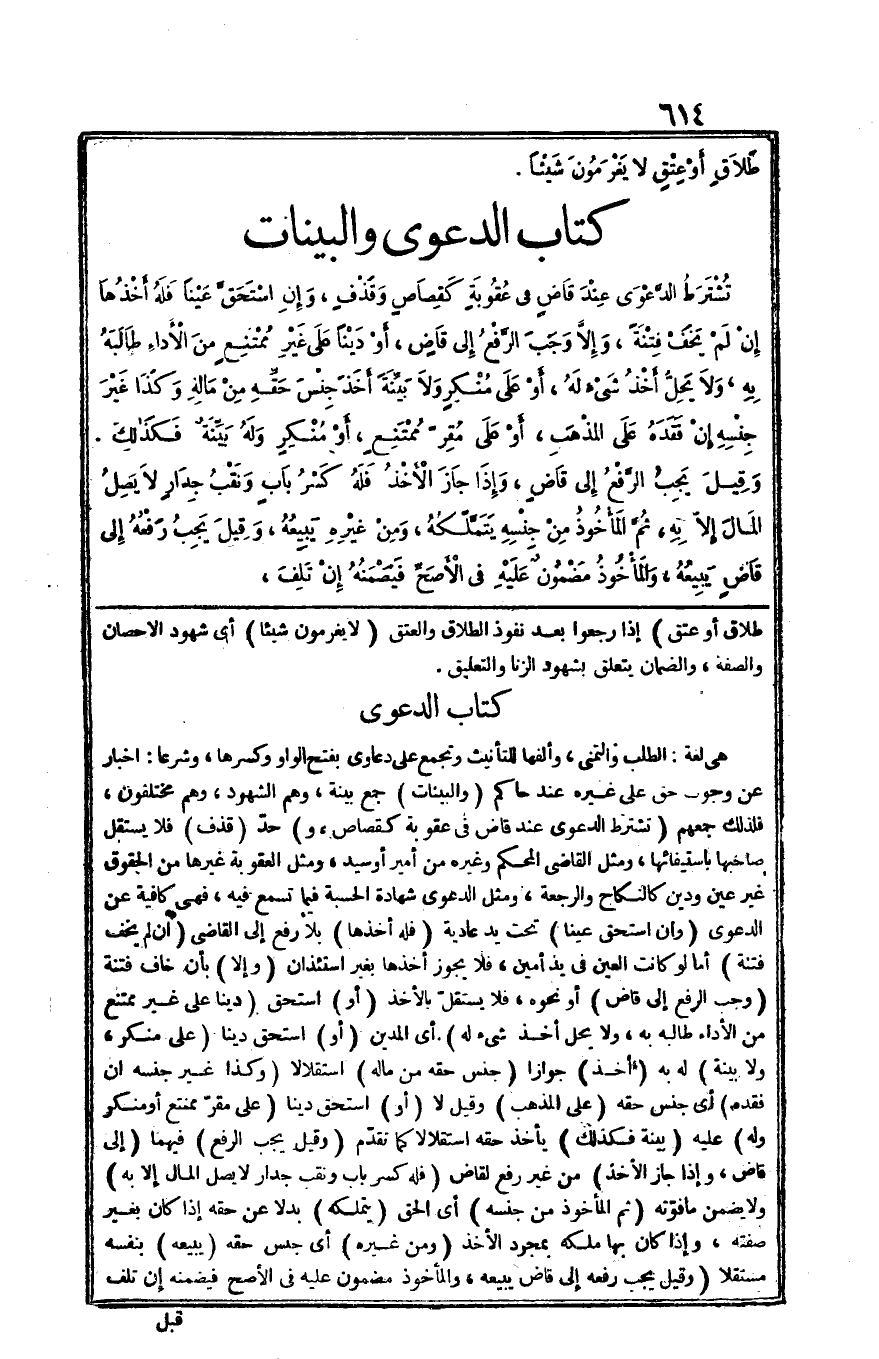 ٦١٤
طَلاَقٍ أَوْ عِتْقٍ لا يَغْرَمُونَ شَيْئاً .
كتاب الدعوى والبينات
تُشْتَرَطُ الدَّعْوَى عِنْدَ قَاضٍ فى عُقُوبَةٍ كَقِصَاصٍ وَقَذْفٍ ، وَإِنِ اسْتَحَقَّ عَيْناً فَلَهُ أَخْذُهَا
إِنْ لَمْ يَخَفْ فِتْنَةً ، وَإِلاَّ وَجَبَ الرَّفْعُ إِلى قَاضٍ ، أَوْ دَيْناً عَلَى غَيْرِ مُمْتَنِعٍ مِنَ الْأَداءِ طَالَبَهُ
بِهِ ، وَلاَ يَحِلُّ أَخْذُ شَىْءٍ لَهُ ، أَوْ عَلَى مُنْكِرٍ وَلاَ بَيِّنَةَ أَخَذَ جِنْسَ حَقِّهِ مِنْ مَالِهِ وَكَذَا غَيْرَ
جِنْسِهِ إِنْ فَقَدَهُ عَلَى المَذْهَبِ ، أَوْ عَلَى مُقِرٍّ مُمْتَنِعٍ ، أَوْ مُنْكِرٍ وَلَهُ بَيِّنَةٌ فَكَذٰلِكَ .
وَقِيلَ يَجِبُ الرَّفْعُ إِلى قَاضٍ ، وَإِذَا جَازَ الْأَخْذُ فَلَهُ كَسْرُ بَابٍ وَنَقْبُ جِدَارٍ لاَ يَصِلُ
المَالَ إِلاَّ بِهِ ، ثُمَّ المَأْخُوذُ مِنْ جِنْسِهِ يَتَمَلَّكُهُ ، وَمِنْ غَيْرِهِ يَبِيعُهُ ، وَقِيلَ يَجِبُ رَفْعُهُ إِلى
قَاضٍ يَبِيعُهُ ، وَالمَأْخُوذُ مَضْمُونٌ عَلَيْهِ فى الْأَصَحِّ فَيَضْمَنُهُ إِنْ تَلِفَ ،
طلاق أو عتق ) إذا رجعوا بعد نفوذ الطلاق والعتق ( لايغرمون شيئا ) أى شهود الاحصان
والصفة ، والضمان يتعلق بشهود الزنا والتعليق .
كتاب الدعوى
هى لغة : الطلب والتمنى ، وألفها للتأنيث وتجمع على دعاوى بفتح الواو وكسرها ، وشرعا : اخبار
عن وجوب حق على غيره عند حاكم ( والبينات ) جمع بينة ، وهم الشهود ، وهم مختلفون ،
فلذلك جمعهم ( تشترط الدعوى عند قاض فى عقوبة كقصاص ، و ) حدّ ( قذف ) فلا يستقل
صاحبها باستيفائها ، ومثل القاضى المحكم وغيره من أمير أوسيد ، ومثل العقوبة غيرها من الحقوق
غير عين ودين كالنكاح والرجعة ، ومثل الدعوى شهادة الحسبة فيما تسمع فيه ، فهى كافية عن
الدعوى ( وان استحق عينا ) تحت يد عادية ( فله أخذها ) بلا رفع إلى القاضى ( ان لم يخف
فتنة ) أما لو كانت العين فى يد أمين ، فلا يجوز أخذها بغير استئذان ( وإلا ) بأن خاف فتنة
( وجب الرفع إلى قاض ) أو نحوه ، فلا يستقلّ بالأخذ ( أو ) استحق ( دينا على غير ممتنع
من الأداء طالبه به ، ولا يحل أخذ شىء له ) . أى المدين ( أو ) استحق دينا ( على منكر ،
ولا بينة ) له به ( أخذ ) جوازا ( جنس حقه من ماله ) استقلالا ( وكذا غير جنسه ان
فقده ) أى جنس حقه ( على المذهب ) وقيل لا ( أو ) استحق دينا ( على مقرّ ممتنع أومنكر
وله ) عليه ( بينة فكذلك ) يأخذ حقه استقلالا كما تقدّم ( وقيل يجب الرفع ) فيهما ( إلى
قاض ، وإذا جاز الأخذ ) من غير رفع لقاض ( فله كسر باب ونقب جدار لايصل المال إلا به )
ولايضمن مافوّته ( ثم المأخوذ من جنسه ) أى الحق ( يتملكه ) بدلا عن حقه إذا كان بغير
صفته ، وإذا كان بها ملكه بمجرد الأخذ ( ومن غيره ) أى جنس حقه ( يبيعه ) بنفسه
مستقلا ( وقيل يجب رفعه إلى قاض يبيعه ، والمأخوذ مضمون عليه فى الأصح فيضمنه إن تلف
قبل